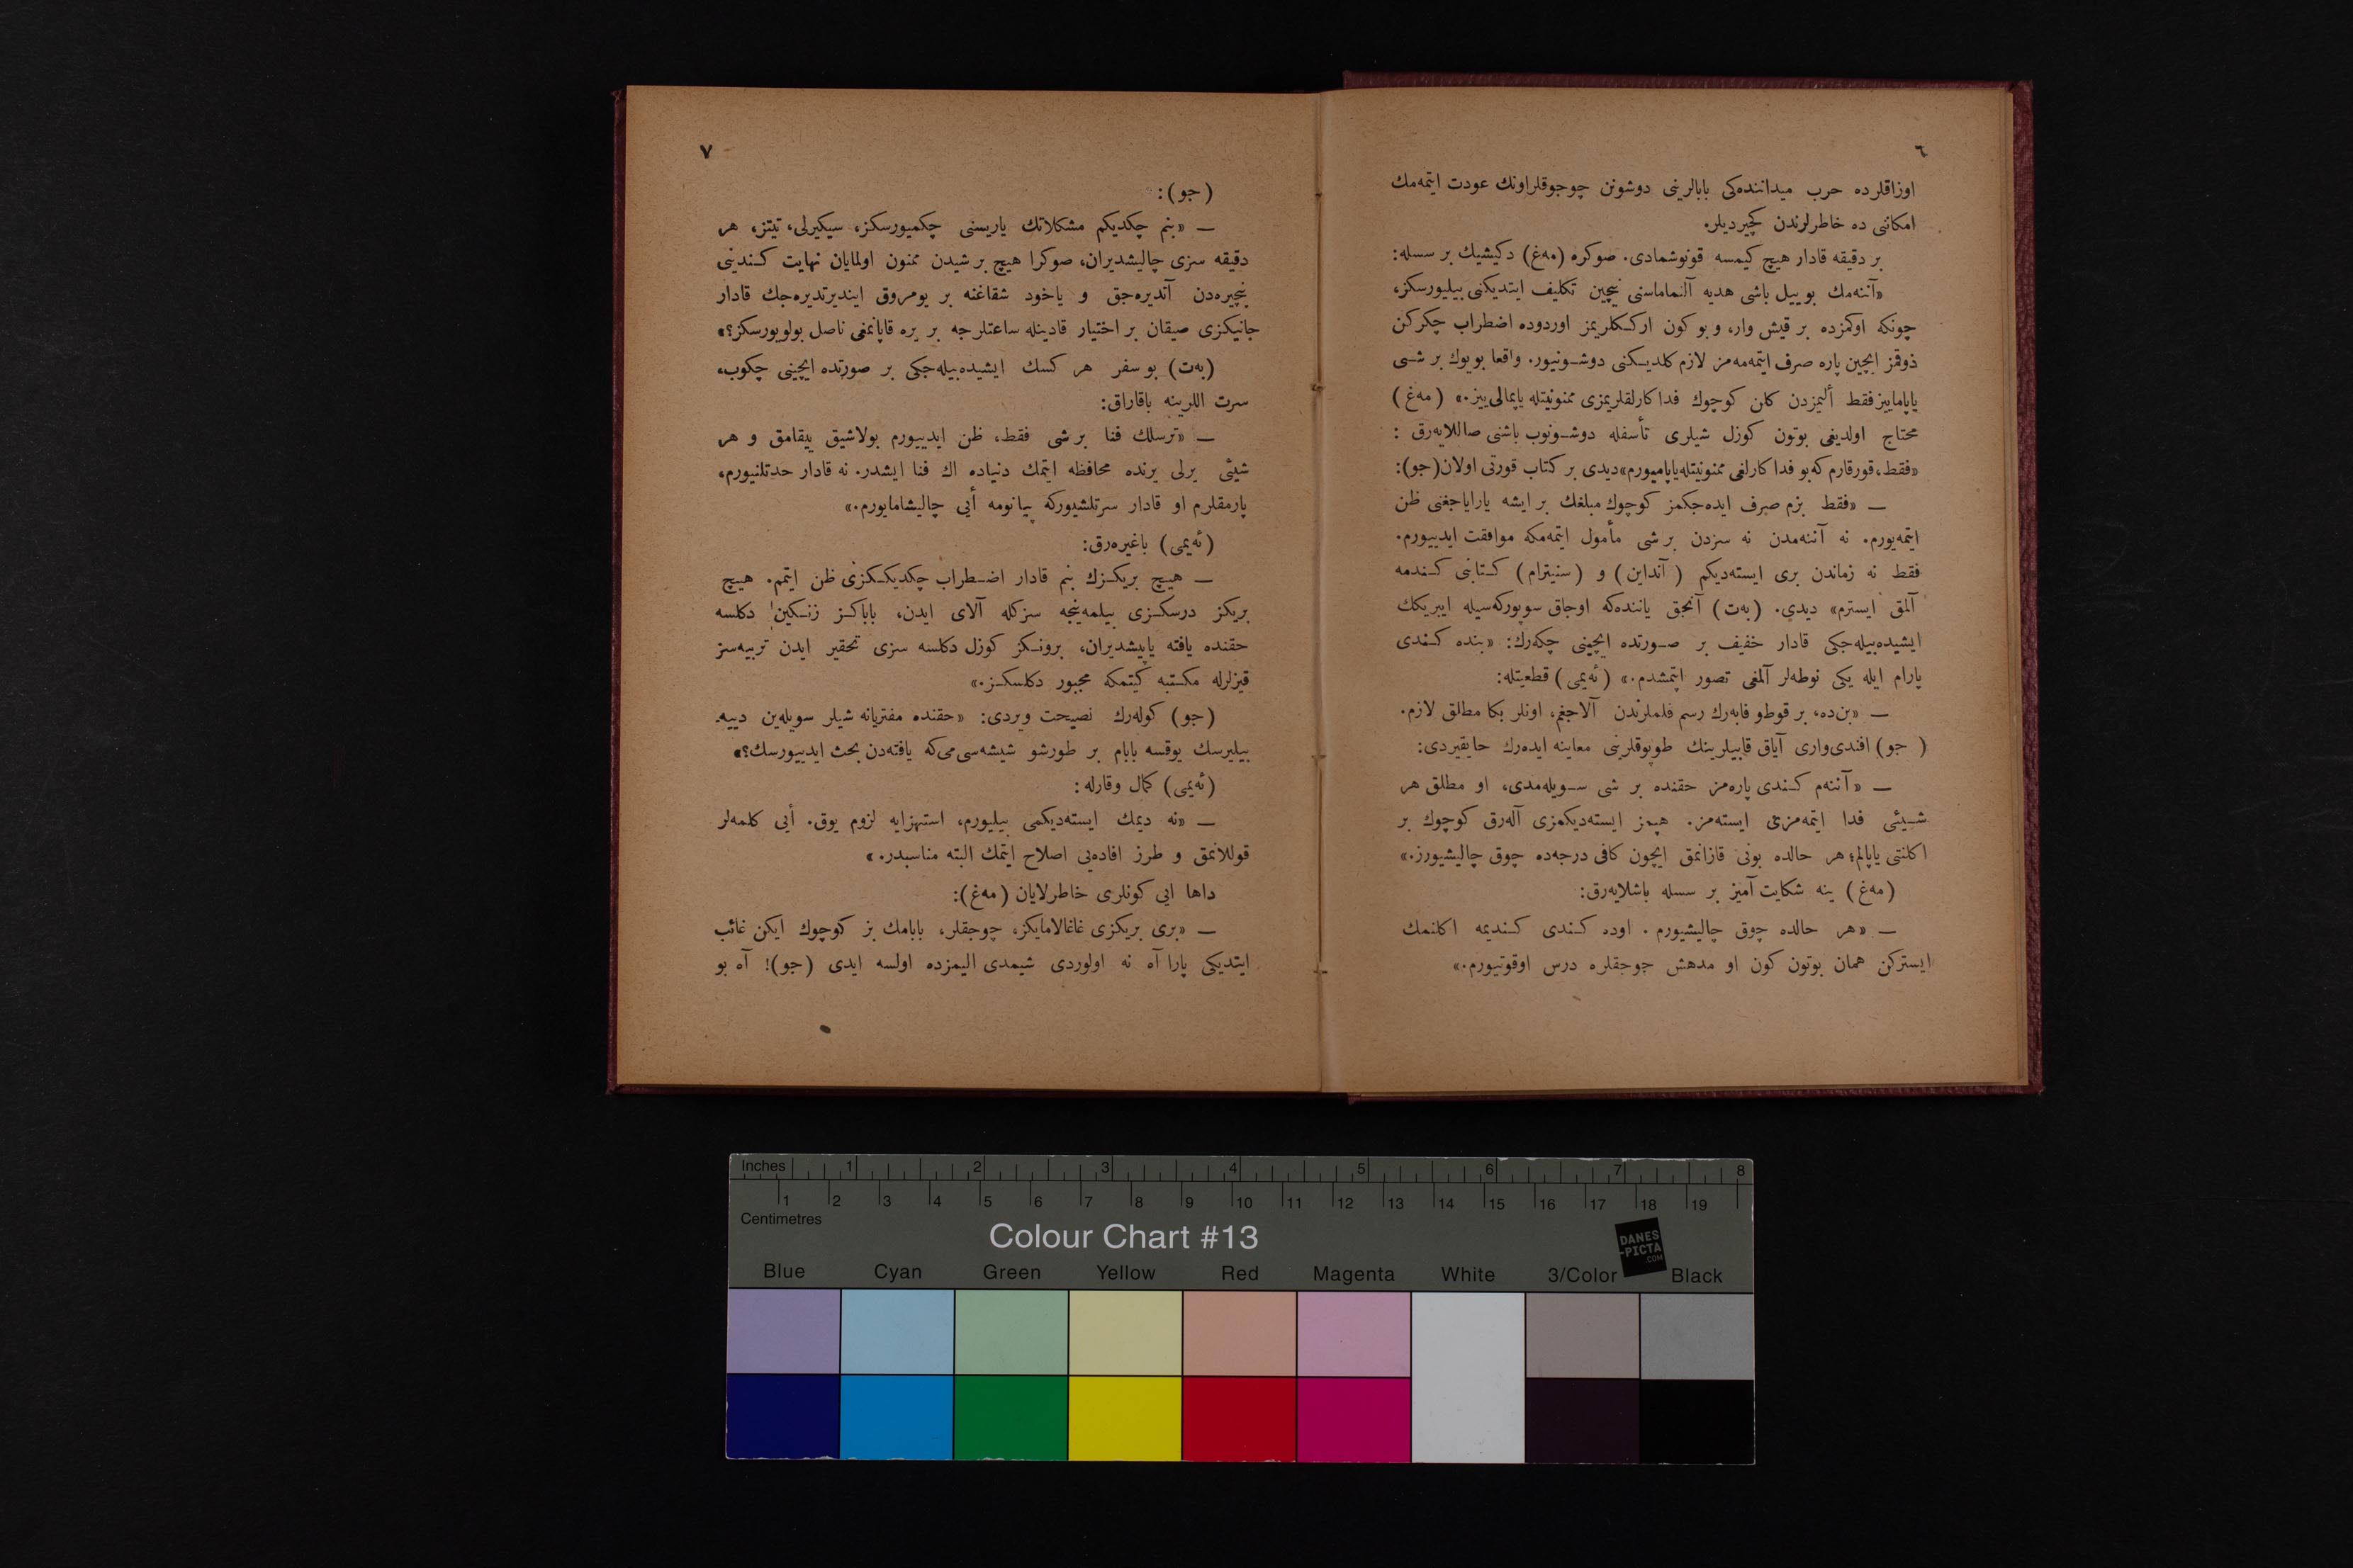 ٦
اوزاقلرده حرب میداننده‌کی بابالرینی دوشونن چوجوقلر اونك عودت ایتمه‌مك
امکاننی ده خاطرلرندن کچیردیلر.
بر دقیقه قادار هیچ کیمسه قونوشمادی. صوکره (مه‌غ) دکیشیك بر سسله:
«آننه‌مك بو ییل باشی هدیه آلنماماسنی نیچین تکلیف ایتدیکنی بیلیورسکز،
چونکه اوکمزده بر قیش وار، و بو کون ارککلریمز اوردوده اضطراب چکرکن
ذوقمز ایچین پاره صرف ایتمه‌مه‌مز لازم کلدیکنی دوشونیور. واقعا بویوك بر شی
یاپامایز فقط ألیمزدن کلن کوچوك فداکارلقلریمزی ممنونیتله یاپمالی‌ییز.» (مه‌غ)
محتاج اولدیغی بوتون کوزل شیلری تأسفله دوشونوب باشنی صاللایه‌رق :
«فقط، قورقارم که بو فداکارلغی ممنونیتله یاپامیورم» دیدی بر کتاب قورتی اولان (جو):
— «فقط بزم صرف ایده‌جکمز کوچوك مبلغك بر ایشه یارایاجغنی ظن
ایتمه‌یورم. نه آننه‌مدن نه سزدن بر شی مأمول ایتمه‌مکه موافقت ایدییورم.
فقط نه زماندن بری ایسته‌دیکم (آنداین) و (سنیترام) کتابنی کندمه
آلمق ایسترم» دیدی. (به‌ت) آنجق یاننده‌که اوجاق سوپورکه‌سیله ایبریكك
ایشیده‌بیله‌جکی قادار خفیف بر صورتده ایچینی چکه‌رك: «بنده کندی
پارام ایله یکی نوطه‌لر آلمغی تصور ایتمشدم.» (ئه‌یمی) قطعیتله:
— «بن‌ده، بر قوطو فابه‌رك رسم قلملرندن آلاجغم، اونلر بکا مطلق لازم.
(جو) افندی‌واری آیاق قابیلرینك طوپوقلرینی معاینه ایده‌رك حایقیردی:
— «آننه‌م کندی پاره‌مز حقنده بر شی سویله‌مدی، او مطلق هر
شیئی فدا ایتمه‌مزی ایسته‌مز. هپمز ایسته‌دیکمزی آله‌رق کوچوك بر
اکلنتی یاپالم؛ هر حالده بونی قازانمق ایچون کافی درجه‌ده چوق چالیشیورز.»
(مه‌غ) ینه شکایت آمیز بر سسله باشلایه‌رق:
— «هر حالده چوق چالیشیورم . اوده کندی کندیمه اکلنمك
ایسترکن همان بوتون کون او مدهش جوجقلره درس اوقوتیورم.»
٧
(جو):
— «بنم چکدیکم مشکلاتك یاریسنی چکمیورسکز، سیکیرلی، تیتز، هر
دقیقه سزی چالیشدیران، صوکرا هیچ بر شیدن ممنون اولمایان نهایت کندینی
پنچیره‌دن آتدیره‌جق و یاخود شقاغنه بر یومروق ایندیرتدیره‌جك قادار
جانیکزی صیقان بر اختیار قادینله ساعتلرجه بر یره قاپانمغی ناصل بولویورسکز؟»
(به‌ت) بو سفر هر کسك ایشیده‌بیله‌جکی بر صورتده ایچینی چکوب،
سرت اللرینه باقاراق:
— «ترسلك فنا بر شی فقط، ظن ایدییورم بولاشیق ییقامق و هر
شیئی یرلی یرنده محافظه ایتمك دنیاده اك فنا ایشدر. نه قادار حدتلنیورم،
پارمقلرم او قادار سرتلشیورکه پیانومه أیی چالیشامایورم.»
(ئه‌یمی) باغیره‌رق:
— هیچ بریکزك بنم قادار اضطراب چکدیککزی ظن ایتمم. هیچ
بریکز درسکزی بیلمه‌ینجه سزکله آلای ایدن، باباکز زنکین دکلسه
حقنده یافته یاپیشدیران، برونکز کوزل دکلسه سزی تحقیر ایدن تربیه‌سز
قیزلرله مکتبه کیتمکه مجبور دکلسکز.»
(جو) کوله‌رك نصیحت ویردی: «حقنده مفتریانه شیلر سویله‌ین دییه
بیلیرسك یوقسه بابام بر طورشو شیشه‌سی‌می‌که یافته‌دن بحث ایدییورسك؟»
(ئه‌یمی) کمال وقارله:
— «نه دیمك ایسته‌دیکمی بیلیورم، استهزایه لزوم یوق. أیی کلمه‌لر
قوللانمق و طرز افاده‌یی اصلاح ایتمك البته مناسبدر.»
داها ایی کونلری خاطرلایان (مه‌غ):
— «بری بریکزی غاغالامایکز، چوجقلر، بابامك بز کوچوك ایکن غائب
ایتدیکی پارا آه نه اولوردی شیمدی الیمزده اولسه ایدی (جو)! آه بو
Inches 1 2 3 4 5 6 7 8
1 2 3 4 5 6 7 8 9 10 11 12 13 14 15 16 17 18 19
Centimetres
Colour Chart #13
DANES
-PICTA
.COM
Blue Cyan Green Yellow Red Magenta White 3/Color Black